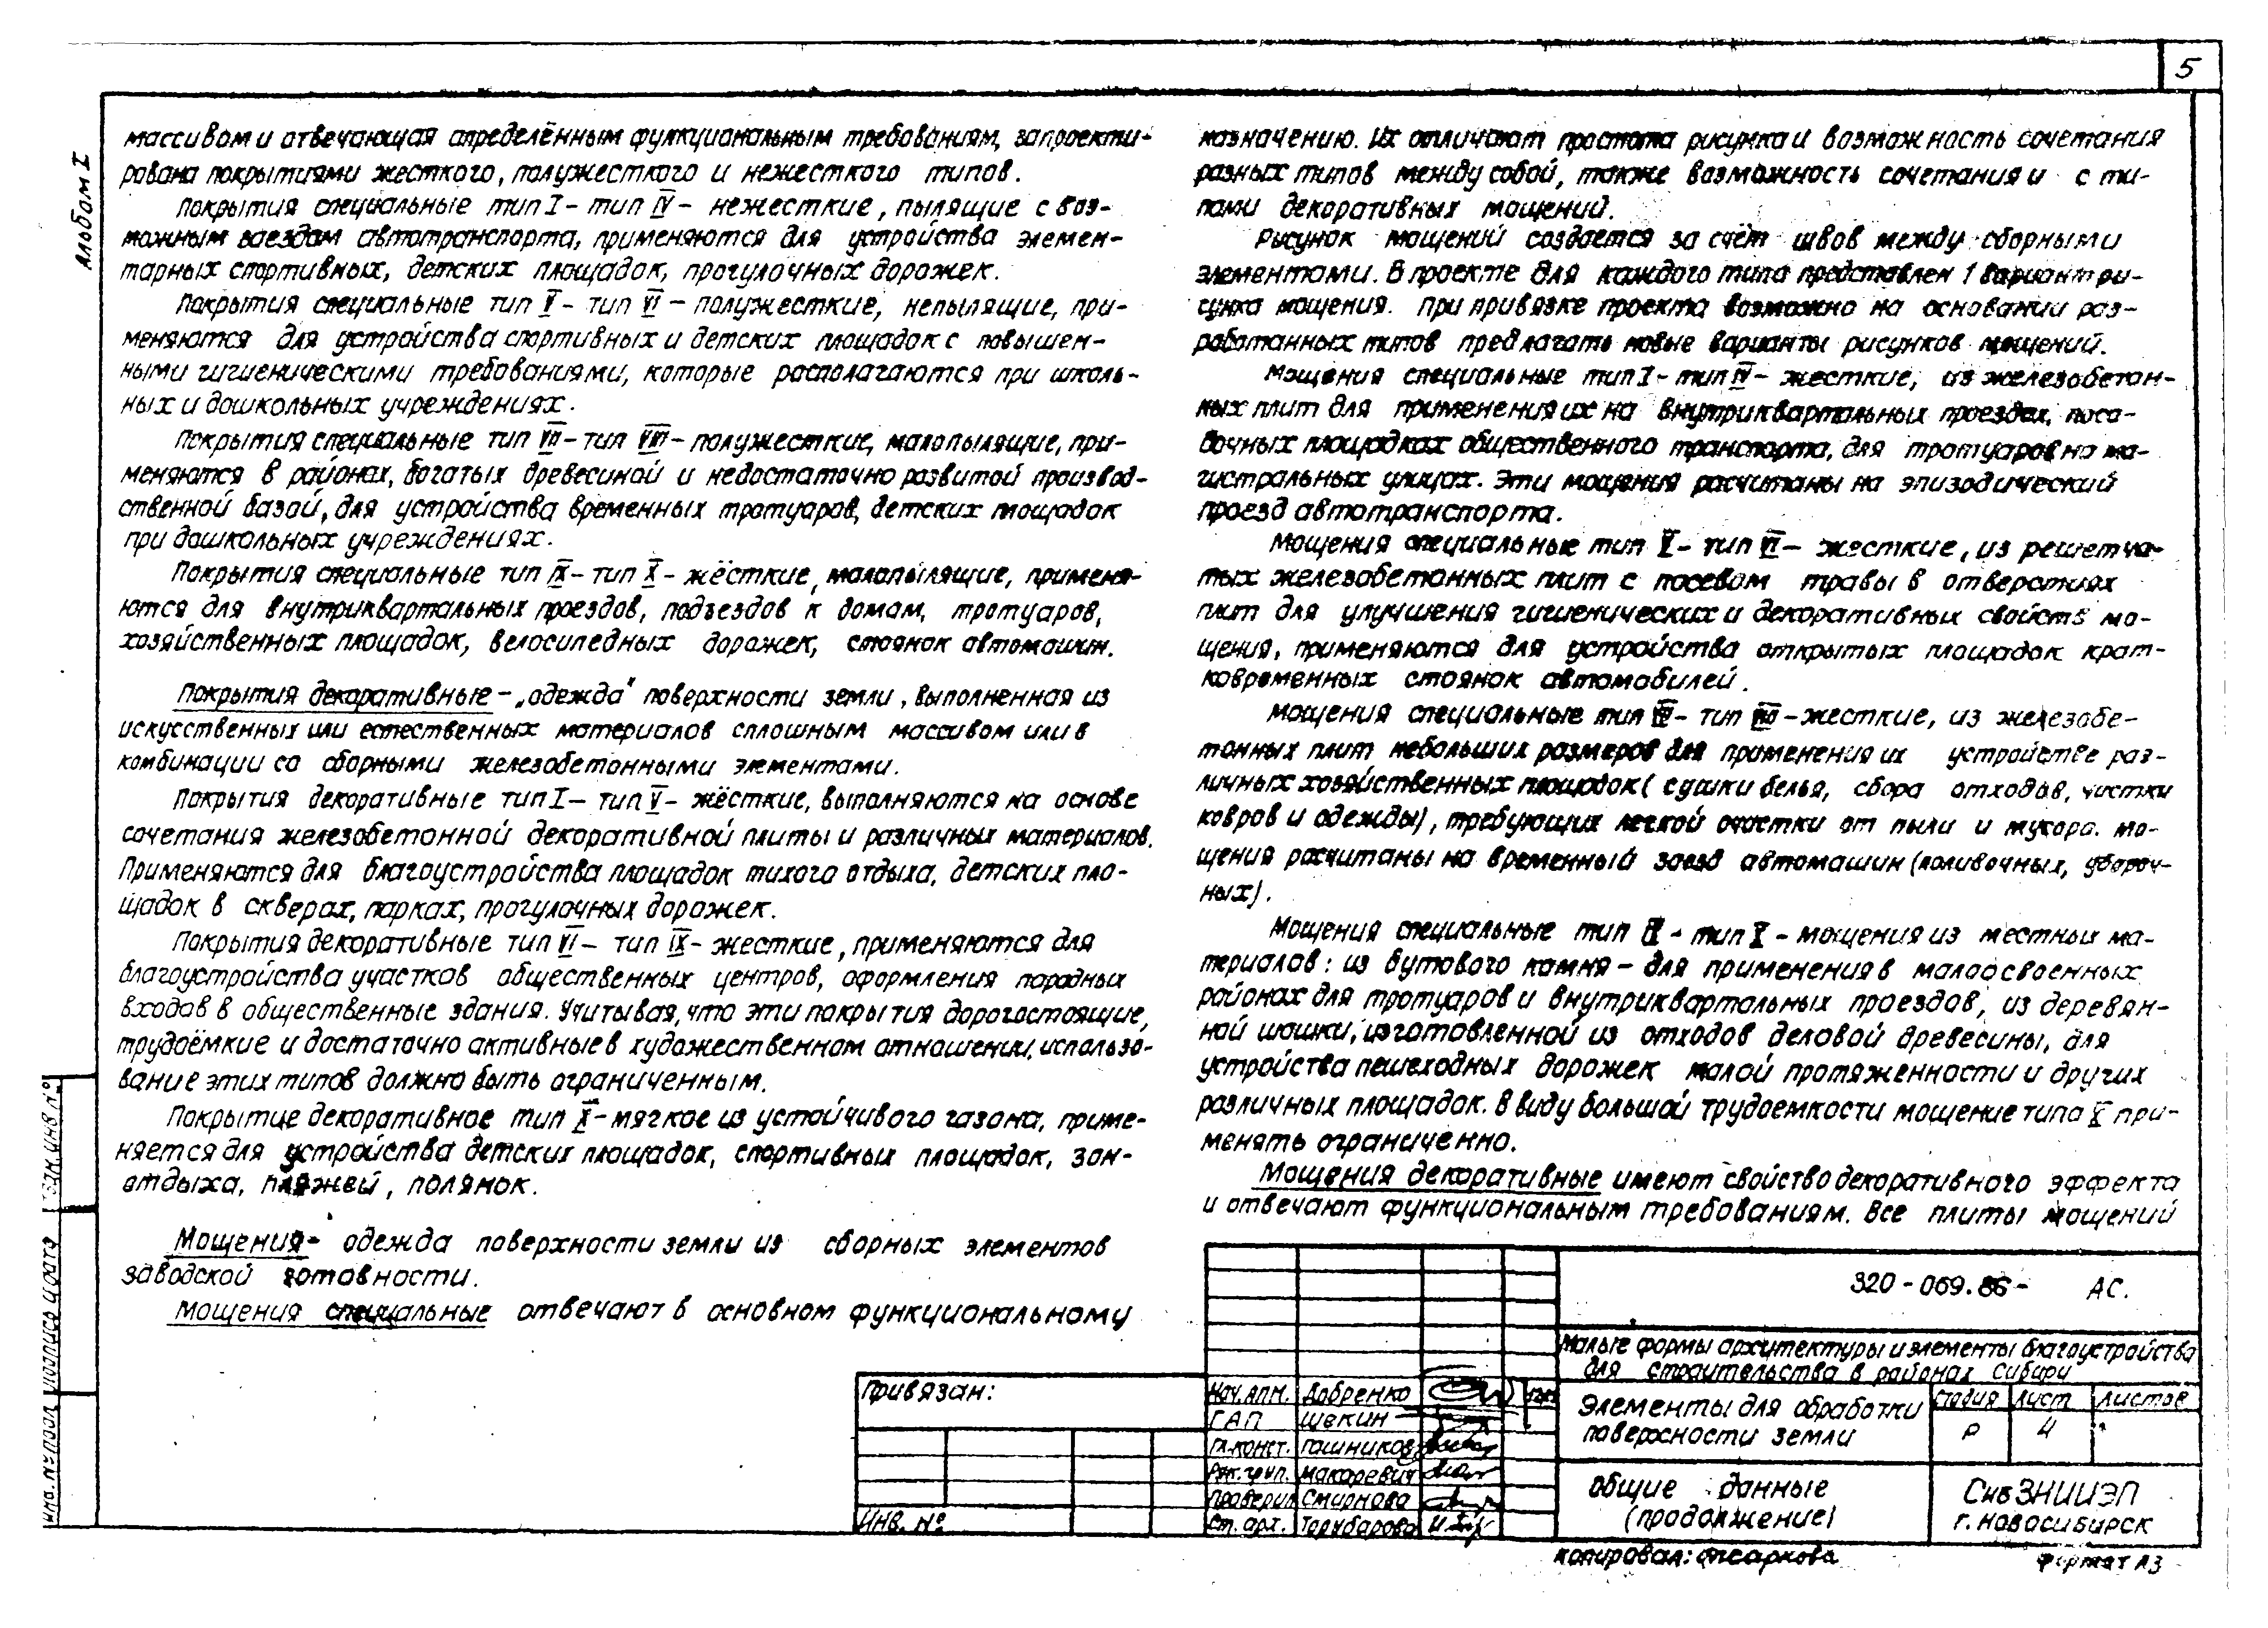 5
Альбом I
массивом и отвечающая определённым функциональным требованиям, запроекти-
рована покрытиями жесткого, полужесткого и нежесткого типов.
Покрытия специальные тип I - тип IV - нежесткие, пылящие с воз-
можным заездом автотранспорта, применяются для устройства элемен-
тарных спортивных, детских площадок, прогулочных дорожек.
Покрытия специальные тип V - тип VI - полужесткие, непылящие, при-
меняются для устройства спортивных и детских площадок с повышен-
ными гигиеническими требованиями, которые располагаются при школь-
ных и дошкольных учреждениях.
Покрытия специальные тип VII - тип VIII - полужесткие, малопылящие, при-
меняются в районах, богатых древесиной и недостаточно развитой производ-
ственной базой, для устройства временных тротуаров, детских площадок
при дошкольных учреждениях.
Покрытия специальные тип IX - тип X - жёсткие, малопылящие, применя-
ются для внутриквартальных проездов, подъездов к домам, тротуаров,
хозяйственных площадок, велосипедных дорожек, стоянок автомашин.
Покрытия декоративные - „одежда" поверхности земли, выполненная из
искусственных или естественных материалов сплошным массивом или в
комбинации со сборными железобетонными элементами.
Покрытия декоративные тип I - тип V - жёсткие, выполняются на основе
сочетания железобетонной декоративной плиты и различных материалов.
Применяются для благоустройства площадок тихого отдыха, детских пло-
щадок в скверах, парках, прогулочных дорожек.
Покрытия декоративные тип VI - тип IX - жесткие, применяются для
благоустройства участков общественных центров, оформления парадных
входов в общественные здания. Учитывая, что эти покрытия дорогостоящие,
трудоёмкие и достаточно активные в художественном отношении, использо-
вание этих типов должно быть ограниченным.
Покрытие декоративное тип X - мягкое из устойчивого газона, приме-
няется для устройства детских площадок, спортивных площадок, зон-
отдыха, пляжей, полянок.
Мощения - одежда поверхности земли из сборных элементов
заводской готовности.
Мощения специальные отвечают в основном функциональному
назначению. Их отличают простота рисунка и возможность сочетания
разных типов между собой, также возможность сочетания и с ти-
пами декоративных мощений.
Рисунок мощений создается за счёт швов между сборными
элементами. В проекте для каждого типа представлен 1 вариант ри-
сунка мощения. При привязке проекта возможно на основании раз-
работанных типов предлагать новые варианты рисунков мощений.
Мощения специальные тип I - тип IV - жесткие, из железобетон-
ных плит для применения их на внутриквартальных проездах, поса-
дочных площадках общественного транспорта, для тротуаров на ма-
гистральных улицах. Эти мощения расчитаны на эпизодический
проезд автотранспорта.
Мощения специальные тип V - тип VI - жесткие, из решетча-
тых железобетонных плит с посевом травы в отверстиях
плит для улучшения гигиенических и декоративных свойств мо-
щения, применяются для устройства открытых площадок крат-
ковременных стоянок автомобилей.
Мощения специальные тип VII - тип VIII - жесткие, из железобе-
тонных плит небольших размеров для применения их устройстве раз-
личных хозяйственных площадок (сушки белья, сбора отходов, чистки
ковров и одежды), требующих легкой очистки от пыли и мусора. Мо-
щения расчитаны на временный заезд автомашин (поливочных, убороч-
ных).
Мощения специальные тип IX - тип X - мощения из местных ма-
териалов: из бутового камня - для применения в малоосвоенных
районах для тротуаров и внутриквартальных проездов, из деревян-
ной шашки, изготовленной из отходов деловой древесины, для
устройства пешеходных дорожек малой протяженности и других
различных площадок. В виду большой трудоемкости мощение типа X при-
менять ограниченно.
Мощения декоративные имеют свойство декоративного эффекта
и отвечают функциональным требованиям. Все плиты мощений
320-069.86- АС.
Малые формы архитектуры и элементы благоустройства
для строительства в районах Сибири
Элементы для обработки
поверхности земли
Стадия Лист Листов
Р 4
Общие данные
(продолжение)
СибЗНИИЭП
г. Новосибирск
Привязан:
Инв. №
Нач. АПМ. Добренко
ГАП Щекин
Гл. конст. Гашников
Рук. груп. Макаревич
Проверил Смирнова
Ст. арх. Терубарова
Взам. инв. №
Подпись и дата
Инв. № подл
Копировал:
Формат А3